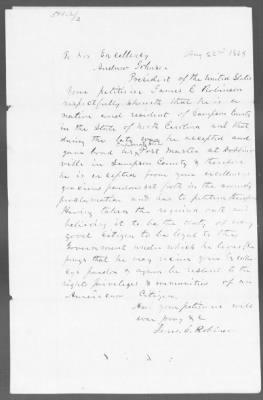 To His Excellency Aug 22nd 1865
Andrew Johnson
President of the United States
Your petitioner James C Robinson
respectfully sheweth that he is a
native and resident of Sampson County
in the State of North Carolina and that
during the late war he accepted and
gave bond as Post Master at
ville in Sampson County & therefore
he is excepted from your excellency's
gracious pardon set forth in the amnesty
proclamation and has to petition therefor
Having taken the required oath and
believing it to be the duty of every
good citizen to be loyal to the
Government under which he lives he
prays that he may receive your Excellen
cys pardon & again be restored to the
rights privileges & immunities of an
American Citizen.
And your petitioner will
ever pray &c
James C. Robinson